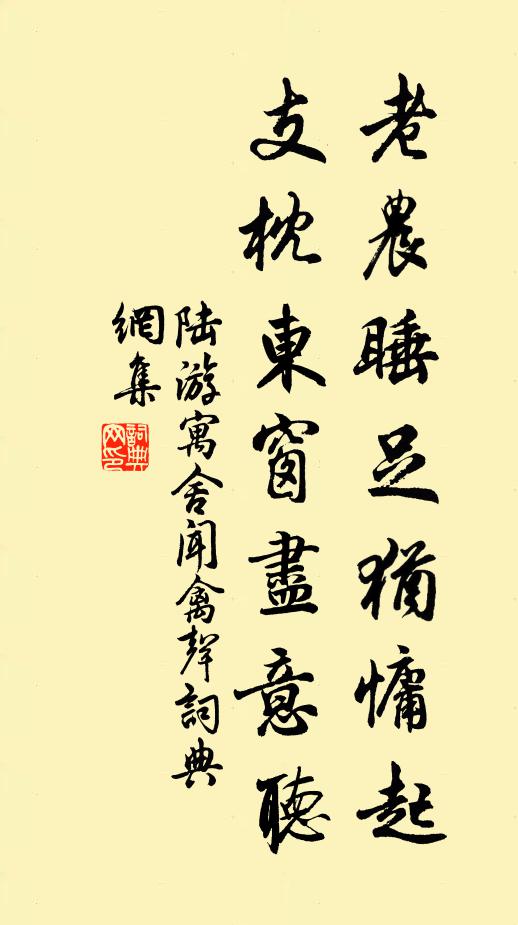 老農睡足猶慵起
支枕東窗盡意聽
陸游寓舍聞禽聲詞典
網集
詞典
网印